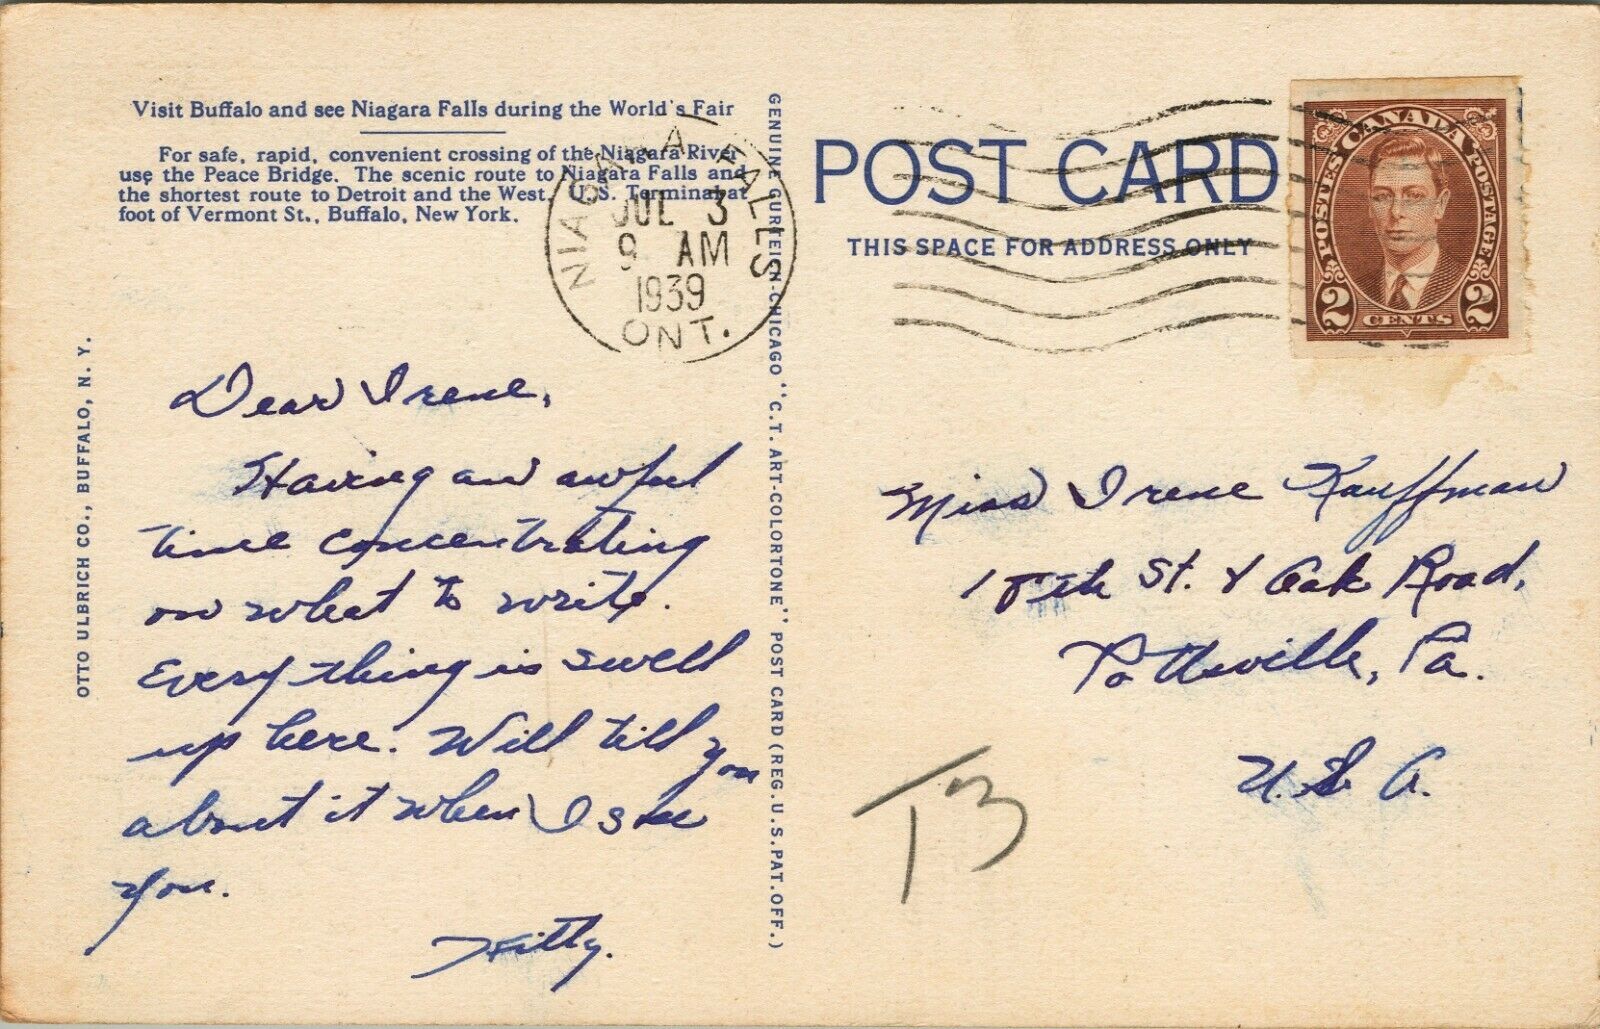 Visit Buffalo and see Niagara Falls during the World's Fair
For safe, rapid, convenient crossing of the Niagara River
use the Peace Bridge. The scenic route to Niagara Falls and
the shortest route to Detroit and the West. U.S. Terminal at
foot of Vermont St., Buffalo, New York.
NIAGARA FALLS
JUL 3
9 AM
1939
ONT.
OTTO ULBRICH CO., BUFFALO, N. Y.
Dear Irene,
Having an awful
time concentrating
on what to write.
Everything is swell
up here. Will tell you
about it when I see
you.
GENUINE CURTEICH-CHICAGO "C.T. ART-COLORTONE" POST CARD (REG. U.S. PAT. OFF.)
POST CARD
THIS SPACE FOR ADDRESS ONLY
CANADA
POSTES POSTAGE
2 CENTS 2
Miss Irene Kauffman
18th St. & Oak Road,
Pottsville, Pa.
U.S.A.
T3